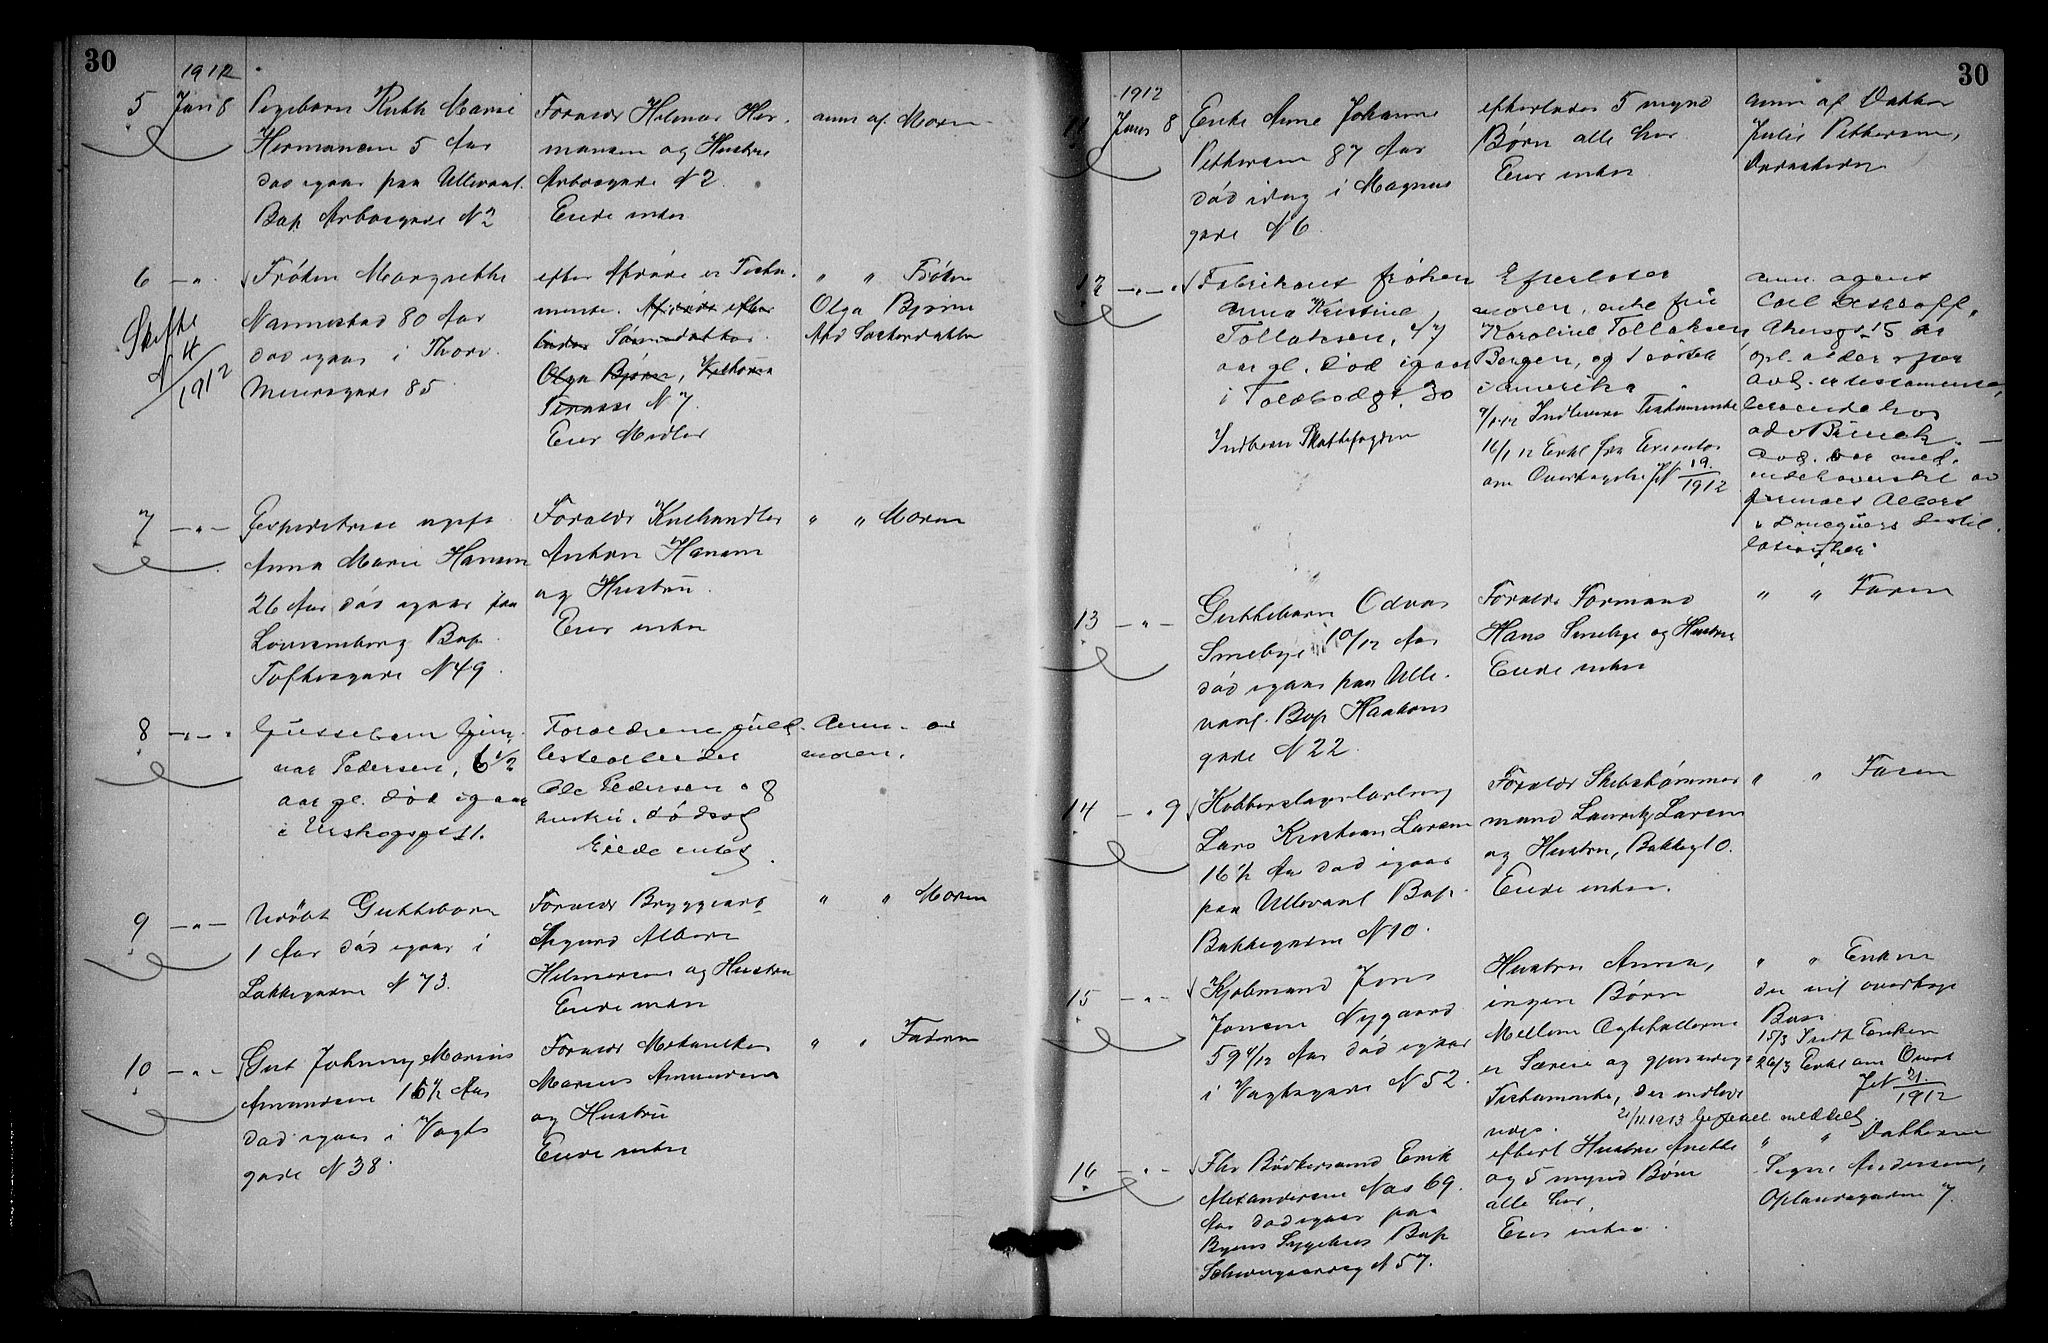 30
1912
5 Jan 8 Pigebarn Ruth Marie
Hermansen 5 Aar
død igaar paa Ullevaal.
Bop. Arbosgade N 2
Forældr Helmer Her-
mansen og Hustru
Arbosgade N 2
Eiede intet
anm. af Moren
6 — " Frøken Margrethe
Nannestad 80 Aar
død igaar i Thorv.
Meiersgade 85
Skifte
4
/1912
efter Afdøde er Testa-
mente.
Olga Bjørn,
Terasse N 7
Eier Midler
" " Frøken
Olga Bjørn
Afd Søsterdatter
7 — " —
Anna Marie Hansen
26 Aar død igaar paa
Lovisenberg Bop.
Toftesgade N 49
Forældr Kulhandler
Anton Hansen
og Hustru
Eier intet
" " Moren
8 — " — " Guttebarn
Pedersen, 6 1/2
aar gl. død igaar
i
Forældrene
Ole Pedersen &
hustru, dødsst
Eiede intet
Anm. av
moren.
9 — " — Udøbt Guttebarn
1 Aar død igaar i
Lakkegaden N 73.
Forældr Bryggearb
Sigurd Albert
Hilmersen og Hustru
Eiede intet
" " Moren
10 — " — Gut Johnny Marius
Amundsen 1 6/12 Aar
død igaar i Vogts
gade N 38.
Forældr Mekaniker
Marius Amundsen
og Hustru
Eiede intet
" " Faderen
30
1912
11 Janr 8 Enke Anne Johanne
Pettersen 87 Aar
død idag i Magnus
gade N 6
efterlader 5 mynd
Børn alle her
Eier intet
anm af Datter
Julie Pettersen,
12 — " — " Fabrikant frøken
Anna Kristine
Tollaksen, 47
aar gl. død igaar
i Toldbodgt. 30
Indberen Skattefogden
Efterlater
moren, enke fru
Karoline Tollaksen
Bergen, og 1 søster
i Amerika
9/1 12 Indleveres Testamente
16/1 12 Erkl fra Executor
om Overtagelse JN 19/1912
anm. agent
Carl
Akersgt 15
opl. at der efter
avd. er testamente
beroende hos
avd. var med-
indehaverske av
firmaet Albert
13 — " — Guttebarn Odvar
Smebye 10/12 Aar
død igaar paa Ulle-
vaal. Bop Haakons
gade N 22
Forældr Formand
Hans Smebye og Hustru
Eiede intet
" " Faren
14 — " 9 Kobberslagerlærling
Lars Kristian Larsen
16 1/2 Aar død igaar
paa Ullevaal Bop.
Bakkegaden N 10.
Forældr Skibstømmer
mand Lauritz Larsen
og Hustru, Bakkeg 10.
Eiede intet.
" " Faren
15 — " — Kjøbmand Jens
Jensen Nygaard
59 4/12 Aar død igaar
i Vogtsgade N 52.
Hustru Anna,
ingen Børn
Mellem Ægtefællerne
er Særeie og gjensidigt
Testamente, der indleve
res.
21/11 1913 meddelt
" " Enken
der vil overtage
Boet
15/3 Indk Enken
26/3 Erkl om Overt
JN 21/1912
16 — " — Fhv Bødkersvend Erik
Alexandersen Næs 69
Aar død igaar paa
Byens Sygehus Bop
Schweigaardsg N 57.
efterl Hustru Anette
og 5 mynd Børn
alle her,
Eier intet.
" " Datteren
Signe Andersen,
Oplandsgaden 7.